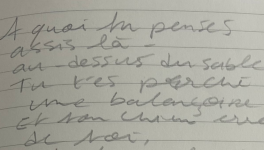 A quoi tu penses
assis là -
au-dessus du sable
Tu t'es perché
une balançoire
Et ton
de toi,